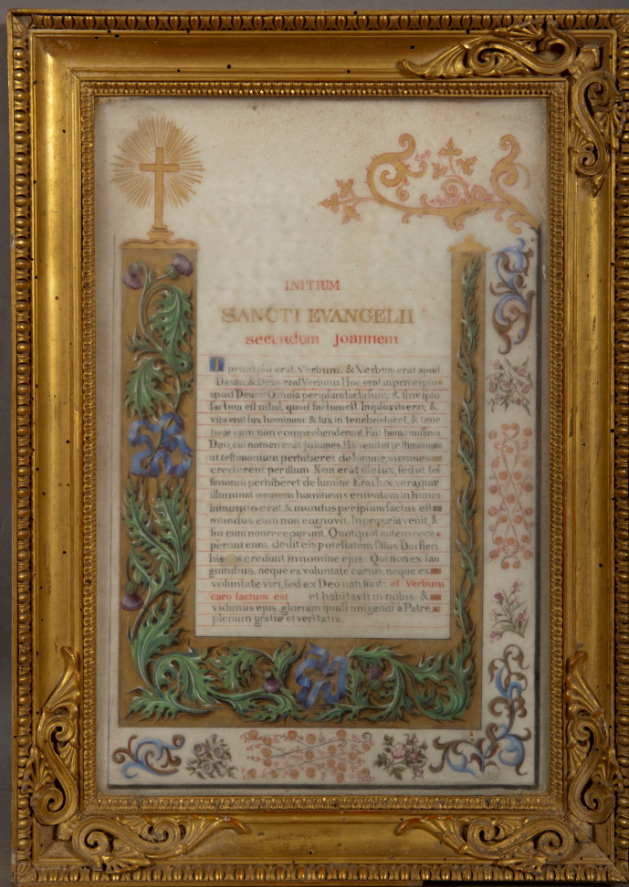 INITIUM
SANCTI EVANGELII
secundum Joannem
In principio erat Verbum, & Verbum erat apud
Deum, & Deus erat Verbum. Hoc erat in principio
apud Deum. Omnia per ipsum facta sunt: & sine ipso
factum est nihil, quod factum est. In ipso vita erat, &
vita erat lux hominum: & lux in tenebris lucet, & tene
bræ eam non comprehenderunt. Fuit homo missus a
Deo, cui nomen erat Joannes. Hic venit in testimonium
ut testimonium perhiberet de lumine, ut omnes
crederent per illum. Non erat ille lux, sed ut tes
timonium perhiberet de lumine. Erat lux vera, quæ
illuminat omnem hominem venientem in hunc
mundum. In mundo erat, & mundus per ipsum factus est
mundus eum non cognovit. In propria venit, &
sui eum non receperunt. Quotquot autem rece
perunt eum, dedit eis potestatem filios Dei fieri
his, qui credunt in nomine ejus. Qui non ex san
guinibus, neque ex voluntate carnis, neque ex
voluntate viri, sed ex Deo nati sunt: et Verbum
caro factum est et habitavit in nobis: &
vidimus ejus, gloriam quasi unigeniti à Patre
plenum gratiæ et veritatis.